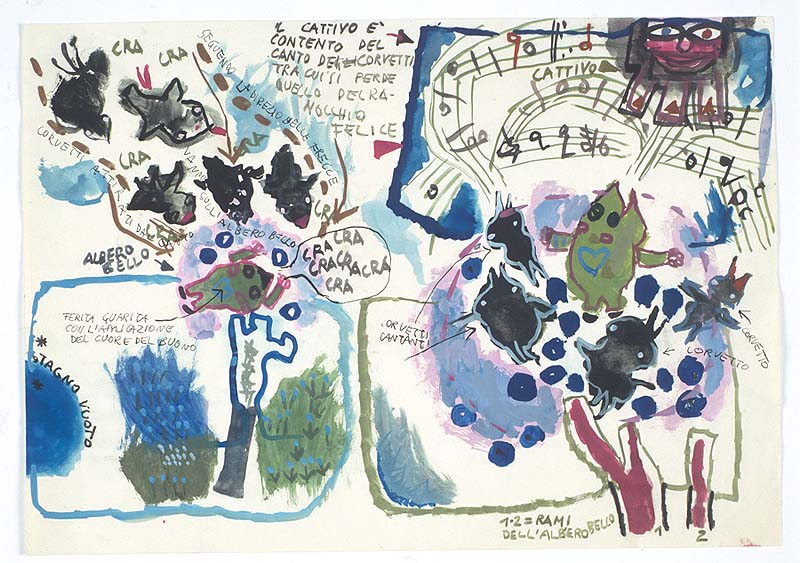 CRA
CRA
CRA
CRA
CRA
CRA
SEGUENDO LA DIREZIONE DELLE FRECCE
CORVETTI ATTIRATI DAL
VANNO SULL'ALBERO BELLO
IL CATTIVO E'
CONTENTO DEL
CANTO DEI CORVETTI
TRA CUI SI PERDE
QUELLO DEL RA-
NOCCHIO
FELICE
CATTIVO
ALBERO
BELLO
CRA
CRA
CRA
CRACRACRA
CRA
FERITA GUARITA
CON L'APPLICAZIONE
DEL CUORE DEL BUONO
* STAGNO VUOTO *
CORVETTI
CANTANTI
CORVETTO
CORVETTO
1-2 = RAMI
DELL'ALBERO BELLO
1
2